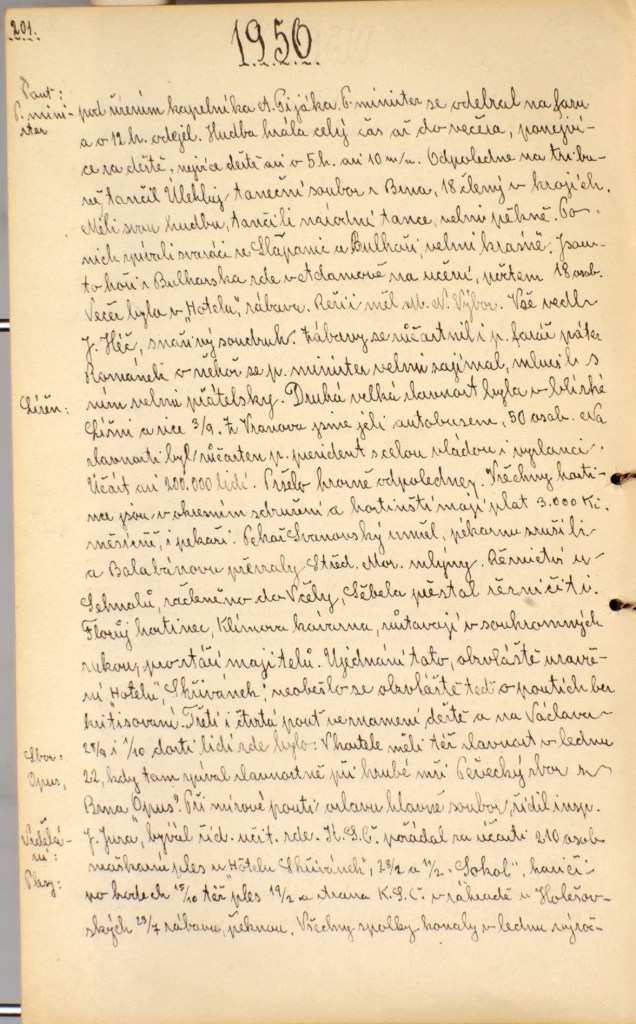 201.
1950
Pout:
P. mini-
ster
pod řízením kapelníka A. Pijáka. P. ministr se odebral na faru
a o 12 h. odejel. Hudba hrála celý čas až do večera, ponejví-
ce za deště, nejvíce deště asi o 5 h. asi 10 m/m. Odpoledne na tribu-
ně tančil Úlehlův taneční soubor z Brna, 18 členný v krojích.
Měli svou hudbu, tančili národní tance, velmi pěkně. Po
nich zpívali svaráci ze Šlapanic a Bulhaři, velmi krásně. Jsou
to hoši z Bulharska zde v Adamově na učení, počtem 18 osob.
Večer byla v „Hotelu“ zábava. Režii měl M. N. Výbor. Vše vedl
J. Héč, snaživý soudruh. Zábavy se zúčastnil i p. farář páter
Románek o něhož se p. ministr velmi zajímal, mluvil s
ním velmi přátelsky. Druhá velká slavnost byla v blízké
Líšeň:
Líšni a sice 3/9. Z Vranova jsme jeli autobusem, 50 osob. Na
slavnosti byl zúčasten p. president s celou vládou i vyslanci.
Účast asi 200.000 lidí. Pršelo hrozně odpoledne. Všechny hosti-
nce jsou v okresním sdružení a hostinští mají plat 3.000 Kč.
měsíčně, i pekaři. Pekař Svanovský umřel, pékárnu zrušili
a Balabánovu převzaly Střed. Mor. mlýny. Řeznictví u
Sehnalů, začleněno do Včely, Sebela přestal řezničiti.
Florův hostinec, Klímova kavárna, zůstávají v soukromných
rukou, pro stáří majitelů. Ujednání toto, obzvláště uzavře-
ní Hotelu „Skřivánek“ neobešlo se obzvláště teď o poutích bez
kritisování. Třetí i čtvrtá pouť ve znamení deště a na Václava
28/9 i 1/10 dosti lidí zde bylo: V kostele měli též slavnost v lednu
Sbor:
Opus,
22, kdy tam zpíval slavnostně při hrubé mši Pěvecký sbor z
Brna „Opus“. Při mírové pouti oslavu hlavně soubor, řídil insp.
Vzdělá-
ní:
J. Jura, bývál říd. učit. zde. K.S.Č. pořádal za účasti 210 osob
Plesy:
maškarní ples u „Hotelu Skřivánek“, 28/2 a 11/2 „Sokol“, hasiči
po hodech 15/10 též ples 19/2 a strana K.S.Č. v záhradě u Holešov-
ských 23/7 zábavu, pěknou. Všechny spolky konaly v lednu výroč-